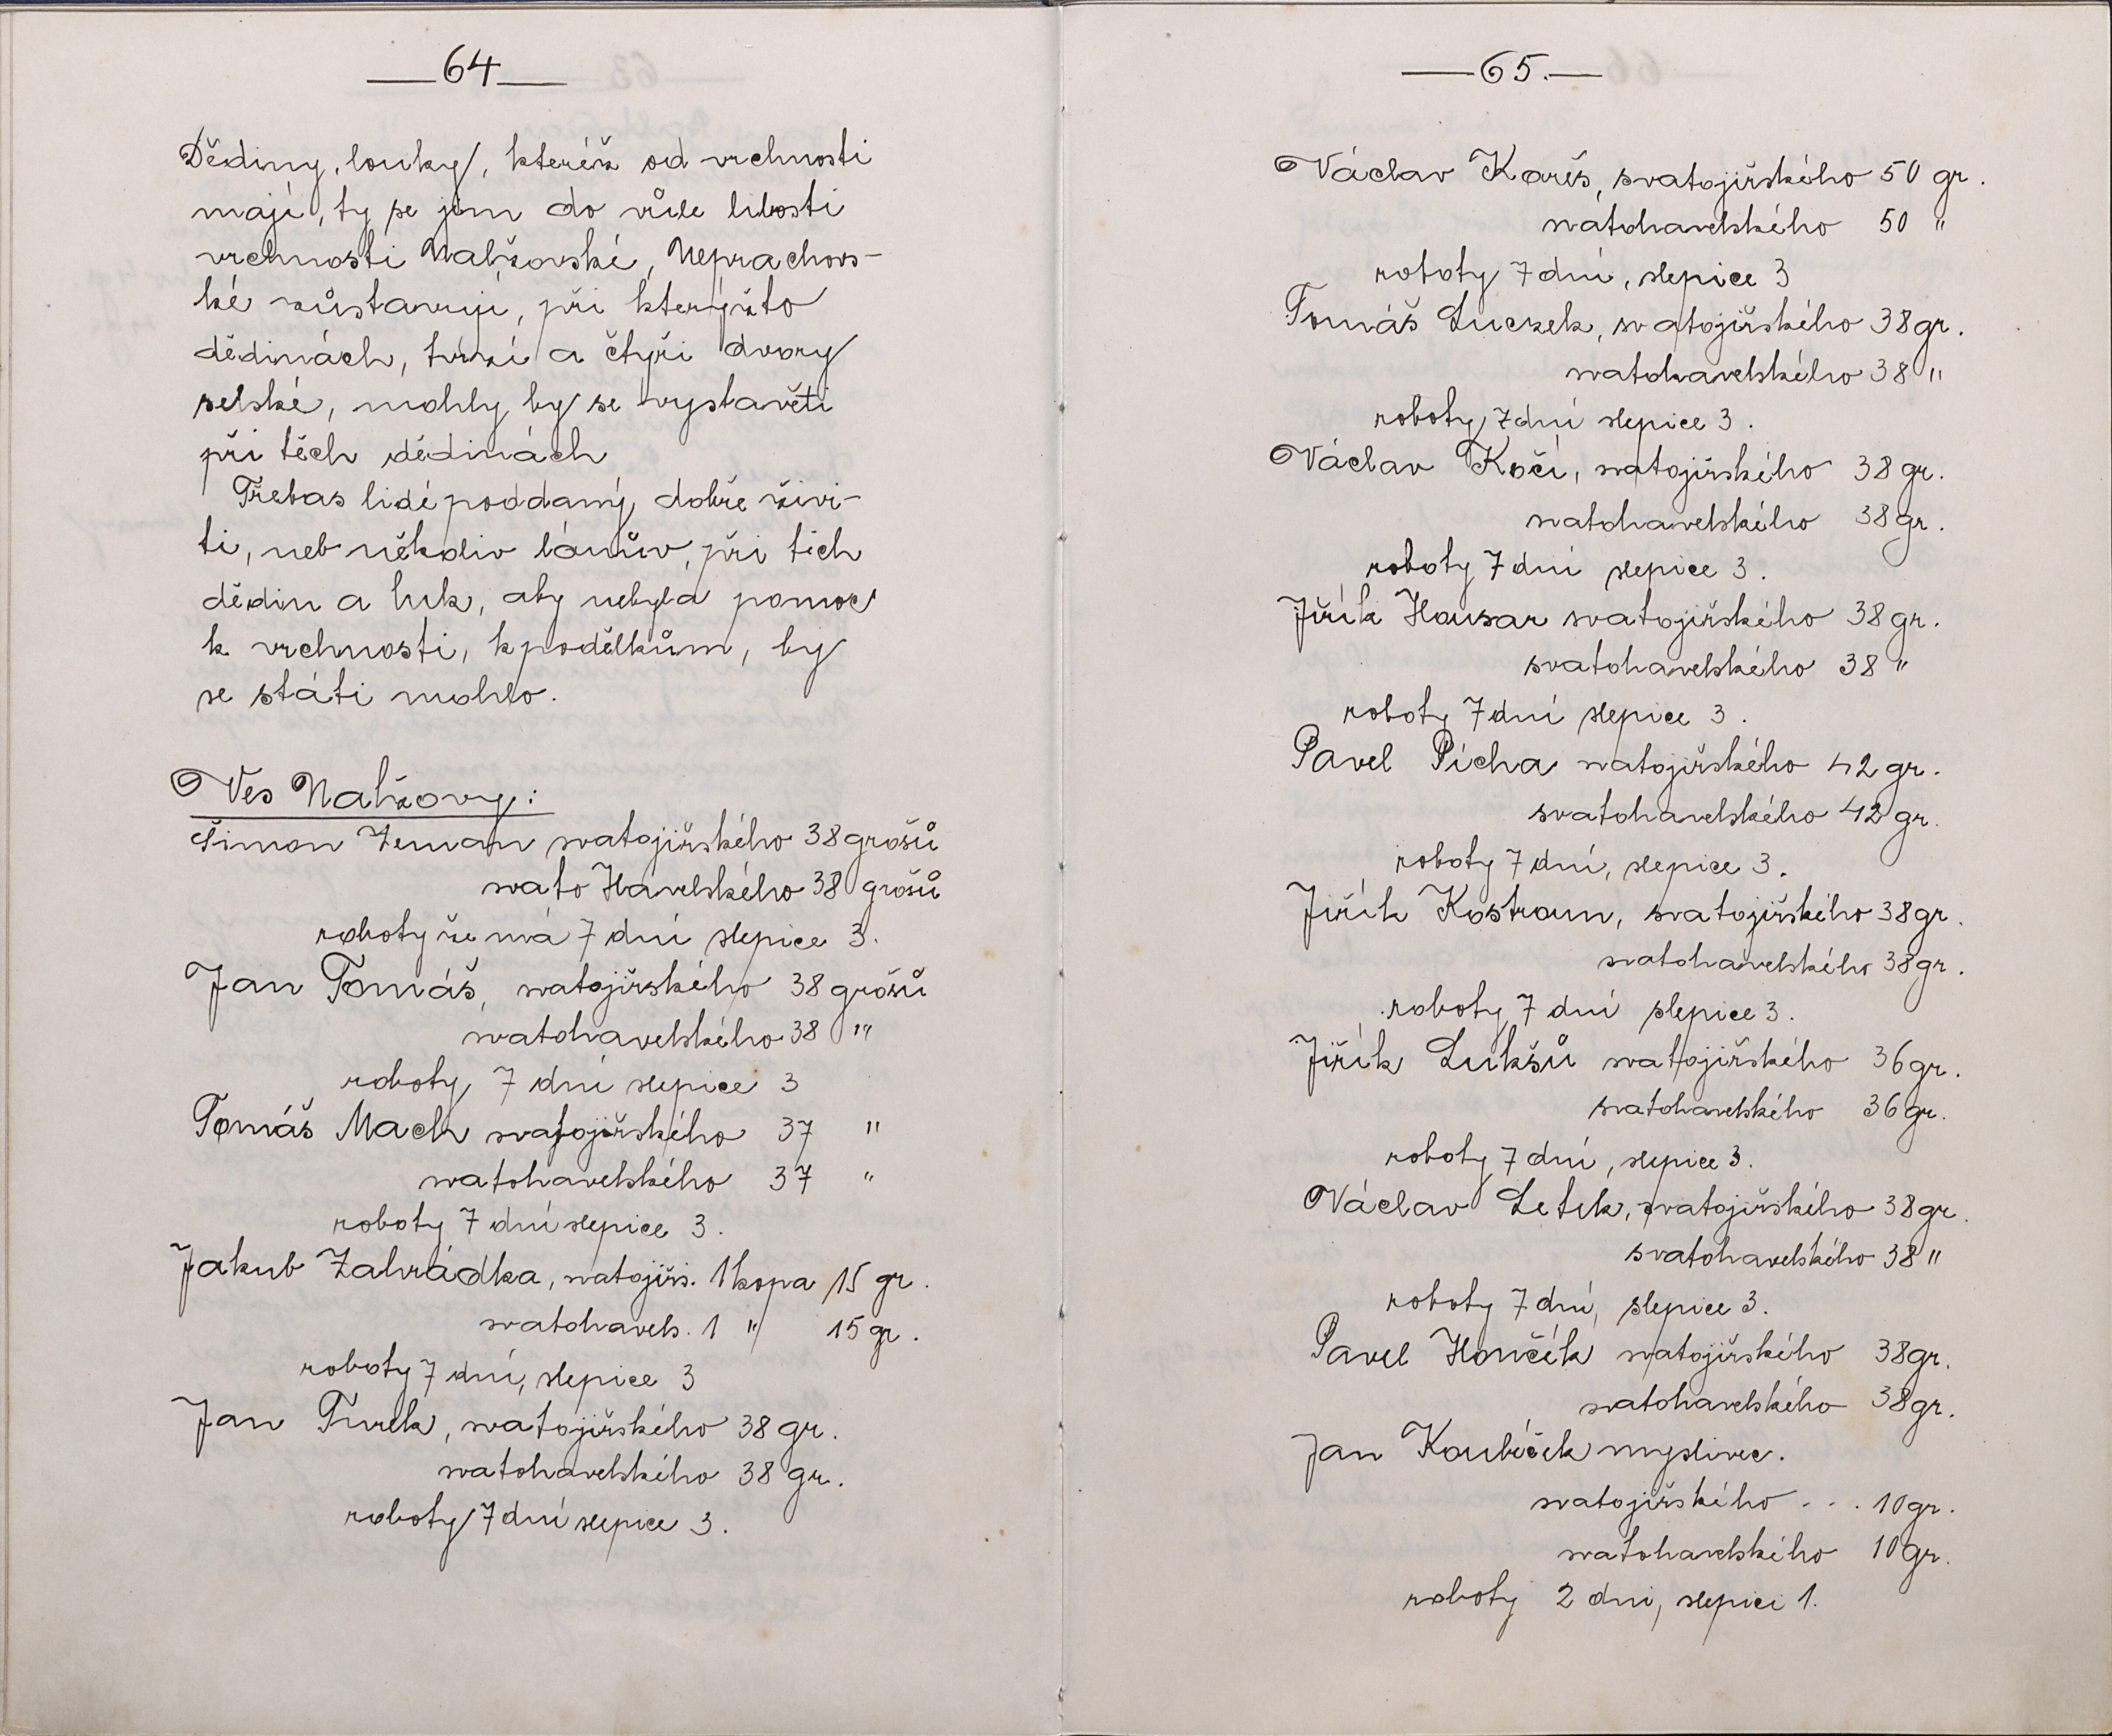 64
Dědiny, louky, kteréž od vrchnosti
mají, ty se jim do vůle libosti
vrchnosti Nalžovské, Neprachovs-
ké zůstavují, při kterýchžto
dědinách, tvrzí a čtyři dvory
selské, mohly by se vystavěti
při těch dědinách
Třebas lidé poddaný dobře živi-
ti, neb několiv lánův, při tich
dědin a luk, aby nebyla pomoc
k vrchnosti, k podělkům, by
se státi mohlo.
Ves Nalžovy:
Šimon Zeman svatojiřského 38 grošů
svato Havelského 38 grošů
roboty že má 7 dní slepice 3.
Jan Tomáš, svatojiřského 38 grošů
svatohavelského 38 "
roboty 7 dní slepice 3
Tomáš Mach svatojiřského 37 "
svatohavelského 37 "
roboty 7 dní slepice 3.
Jakub Zahrádka, svatojiřs. 1 kopa 15 gr.
svatohavels. 1 " 15 gr.
roboty 7 dní, slepice 3
Jan Turek, svatojiřského 38 gr.
svatohavelského 38 gr.
roboty 7 dní slepice 3.
65.
Václav Kareš, svatojiřského 50 gr.
svatohavelského 50 "
roboty 7 dní, slepice 3
Tomáš Luczek, svatojiřského 38 gr.
svatohavelského 38 "
roboty 7 dní slepice 3.
Václav Kočí, svatojiřského 38 gr.
svatohavelského 38 gr.
roboty 7 dní slepice 3.
Jiřík Housar svatojiřského 38 gr.
svatohavelského 38 "
roboty 7 dní slepice 3.
Pavel Pícha svatojiřského 42 gr.
svatohavelského 42 gr.
roboty 7 dní, slepice 3.
Jiřík Kostroun, svatojiřského 38 gr.
svatohavelského 38 gr.
roboty 7 dní slepice 3.
Jiřík Lukšů svatojiřského 36 gr.
svatohavelského 36 gr.
roboty 7 dní, slepice 3.
Václav Letek, svatojiřského 38 gr.
svatohavelského 38 "
roboty 7 dní, slepice 3.
Pavel Hončík svatojiřského 38 gr.
svatohavelského 38 gr.
Jan Koubíček myslivec.
svatojiřského . . . 10 gr.
svatohavelského 10 gr.
roboty 2 dni, slepici 1.